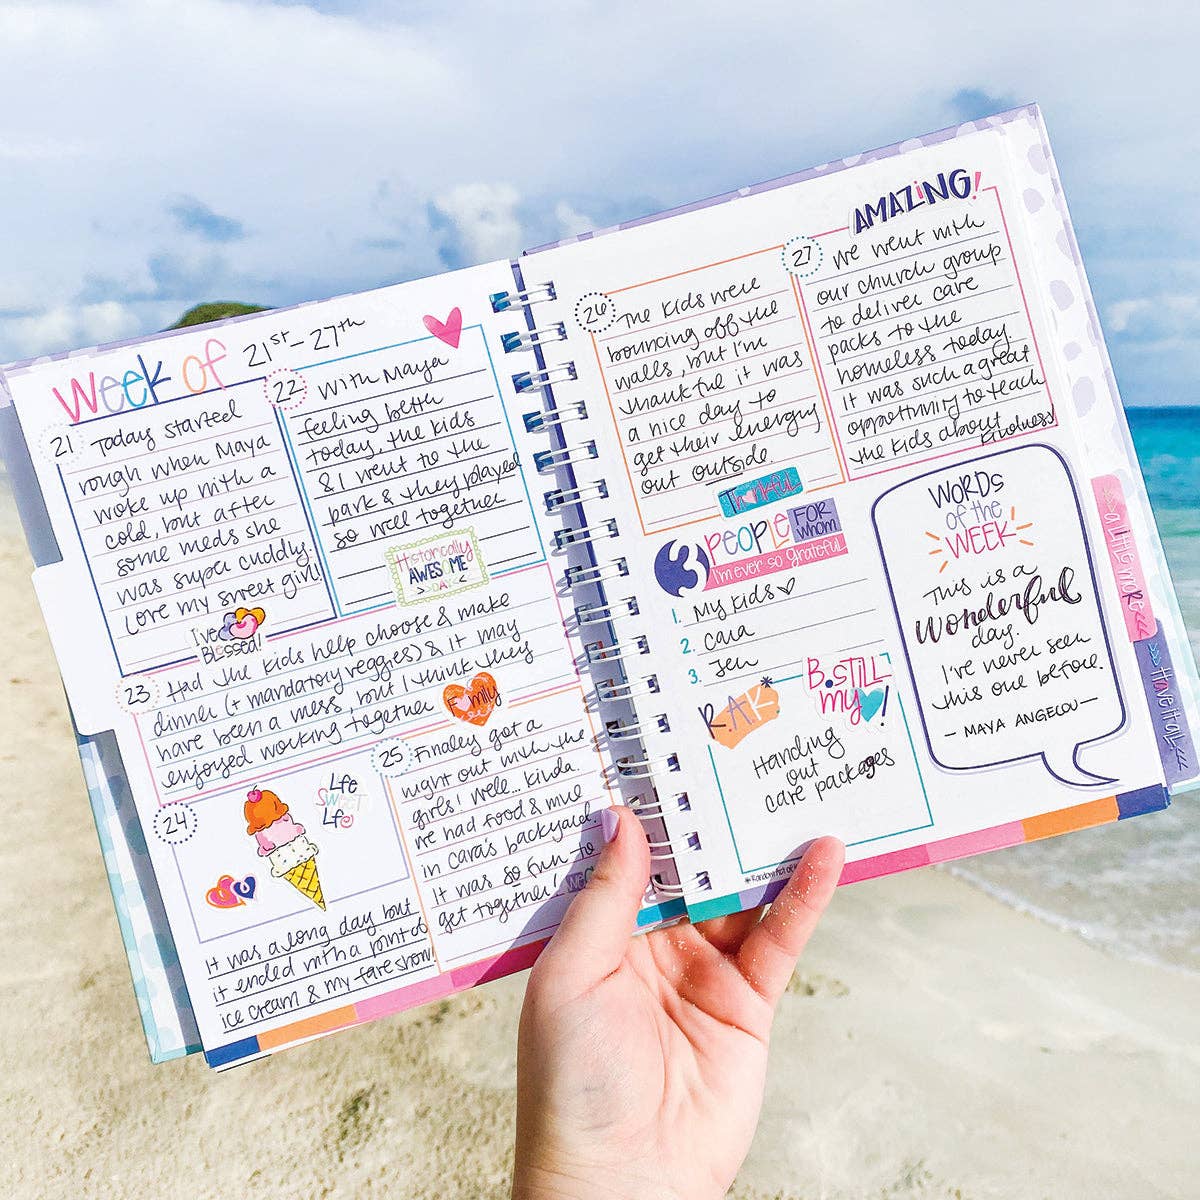 Week of 21st-27th
21
Today started
rough when Maya
woke up with a
cold, but after
some meds she
was super cuddly.
Love my sweet girl!
I've
Blessed!
22
With Maya
feeling better
today, the kids
& I went to the
park & they played
so well together
Historically
AWESOME
DAY
23
Had the kids help choose & make
dinner (+ mandatory veggies) & it may
have been a mess, but I think they
enjoyed working together
Family
24
Life
SWEET
Life
It was a long day but
it ended with a pint of
ice cream & my fave show!
25
Finaley got a
night out with the
girls! Well... kinda.
We had food & mue
in Cara's backyard.
It was so fun to
get together!
26
The kids were
bouncing off the
walls, but I'm
thankful it was
a nice day to
get their energy
out outside.
Thankful
27
AMAZING!
We went with
our church group
to deliver care
packs to the
homeless today.
It was such a great
opportunity to teach
the kids about
kindness
3 people FOR whom
I'm ever so grateful
1. My kids ♡
2. Cara
3. Jen
R.A.K*
B.STILL
my ♥!
Handing
out
care packages
WORDS
of the
WEEK
This is a
wonderful
day.
I've never seen
this one before.
- MAYA ANGELOU -
a little more <<
>>> Have it all <<<